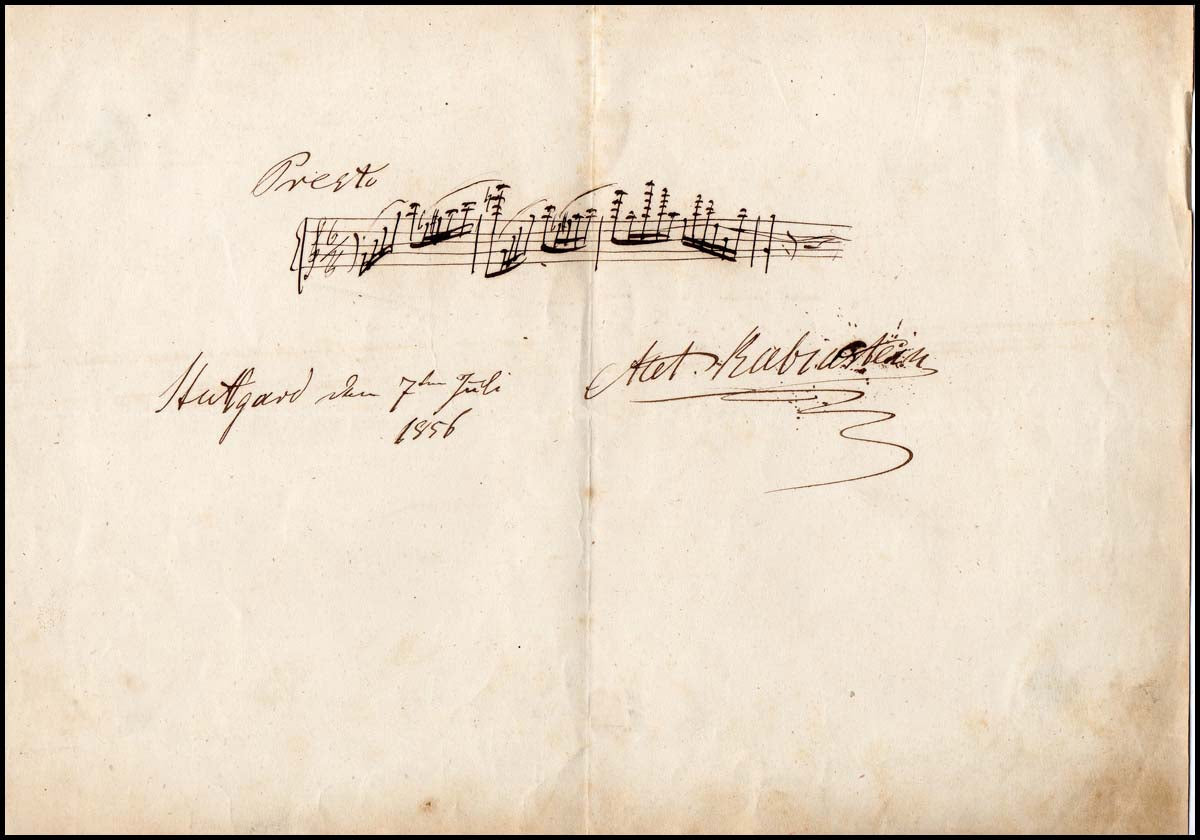 Presto
Stuttgard den 7ten Juli
1856
Ant. Rubinstein